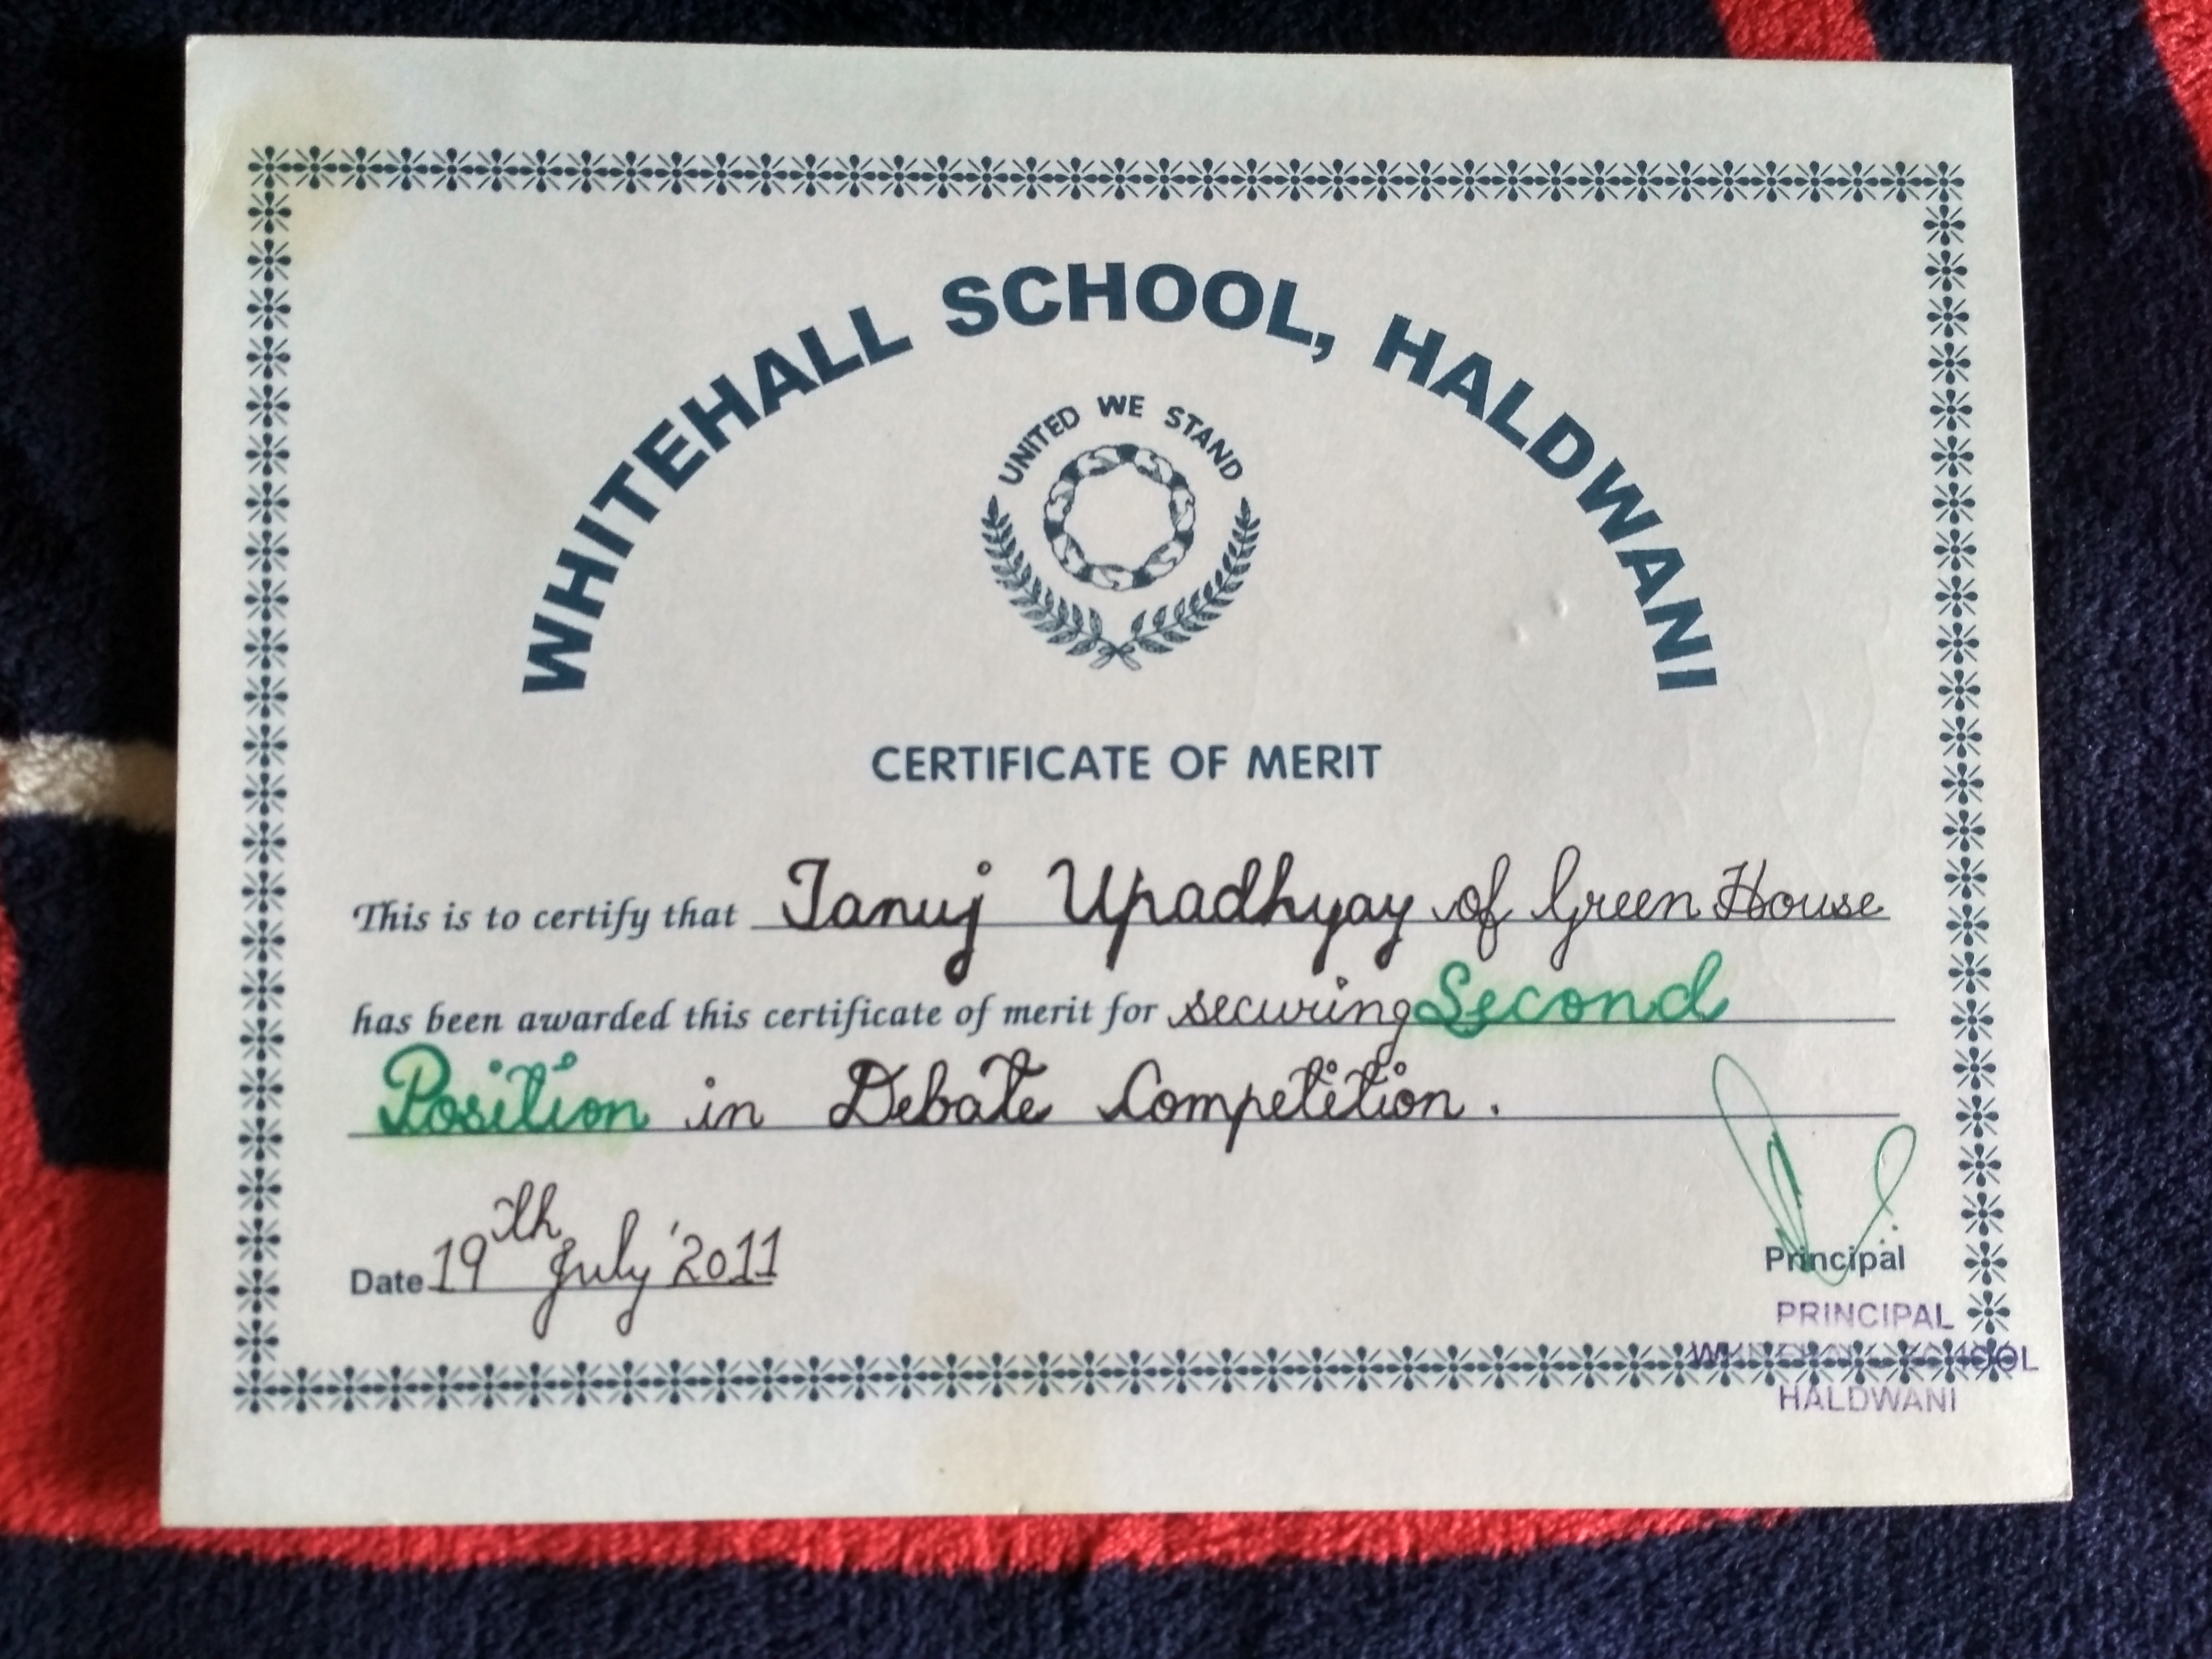 WHITEHALL SCHOOL, HALDWANI
UNITED WE STAND
CERTIFICATE OF MERIT
This is to certify that Tanuj Upadhyay of Green House
has been awarded this certificate of merit for securing Second
Position in Debate Competition.
Date 19th July '2011
Principal
PRINCIPAL
WHITEHALL SCHOOL
HALDWANI